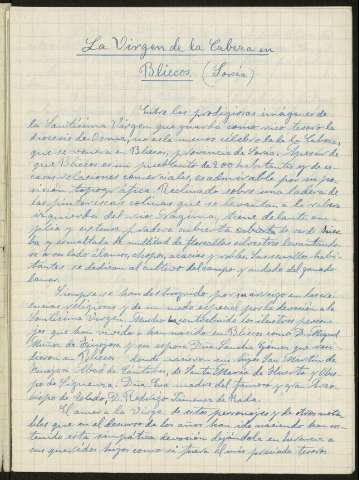 La Virgen de la Cabeza en
Bliecos (Soria)
Entre las prodigiosas imágenes de
la Santísima Virgen que guarda como rico tesoro la
diócesis de Osma, no es la menos célebre la de la Cabeza,
que se venera en Bliecos, provincia de Soria. Apesar de
que Bliecos es un pueblecito de 200 habitantes y de es-
casas relaciones comerciales, es admirable por su po-
sición topográfica. Reclinado sobre una ladera de
las pintorescas colinas que se levantan a la ribera
izquierda del río, tiene delante am-
plia y extensa pradera cubierta de verde hier-
ba y esmaltada de multitud de florecillas silvestres levantándo-
se a su lado álamos, chopos, acacias y nogales. Sus sencillos habi-
tantes se dedican al cultivo del campo y cuidado del ganado
lanar.
Siempre se han distinguido por su arraigo en las cre-
encias religiosas y de un modo especial por la devoción a la
Santísima Virgen. Mucho han contribuido los ilustres persona-
jes que han vivido y han nacido en Bliecos como D. Miguel
Muñoz de Finojosa y su esposa Dña Sancha Gómez que resi-
dieron en Bliecos donde nacieron sus hijos San Martín de
Finojosa Abad de Cántabos, de Santa María de Huerta y Obis-
po de Sigüenza. Dña Eva madre del famoso y gran Arzo-
bispo de Toledo, D. Rodrigo Jimenez de Rada.
El amor a la Virgen de estos personajes y de otros nota-
bles que en el decurso de los años han ido naciendo han sos-
tenido esta simpática devoción dejándola en herencia a
sus queridos hijos como si fuera el más preciado tesoro